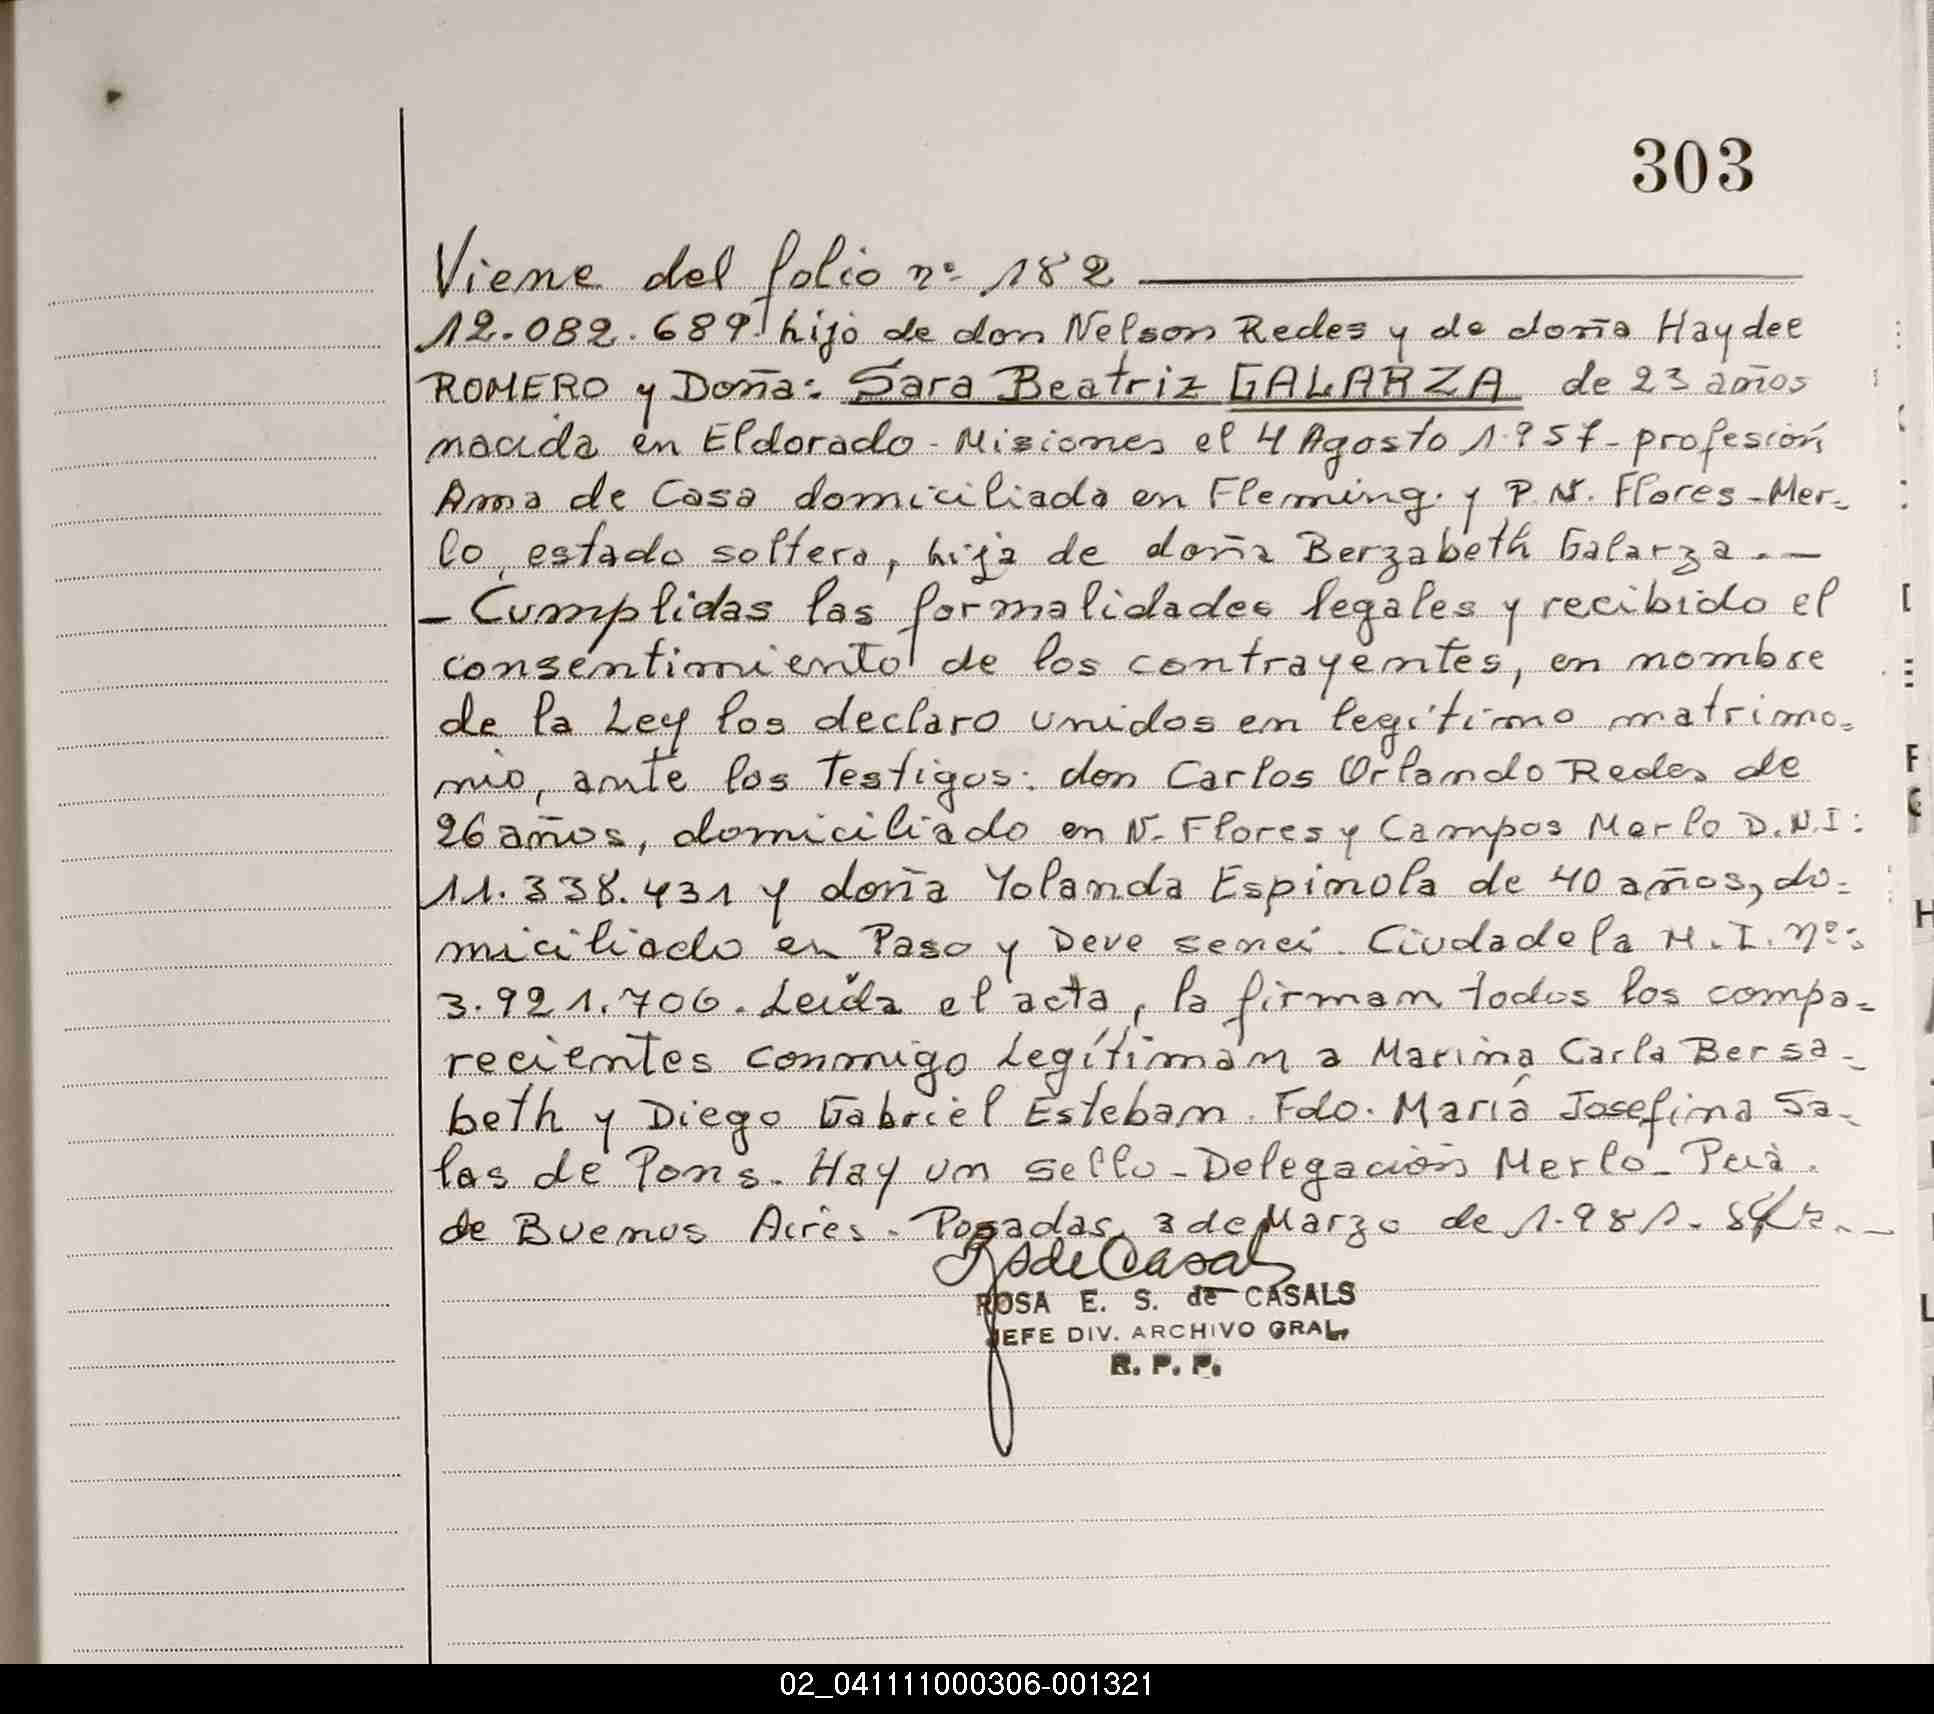 303
Viene del folio nº 182
12.082.689. hijo de don Nelson Redes y de doña Haydee
ROMERO y Doña: Sara Beatriz GALARZA de 23 años
nacida en Eldorado - Misiones el 4 Agosto 1.957 - profesión
Ama de Casa domiciliada en Fleming y P. N. Flores - Mer-
lo, estado soltera, hija de doña Berzabeth Galarza. -
- Cumplidas las formalidades legales y recibido el
consentimiento de los contrayentes, en nombre
de la Ley los declaro unidos en legítimo matrimo=
nio, ante los Testigos: don Carlos Orlando Redes de
26 años, domiciliado en N. Flores y Campos Merlo D.N.I:
11.338.431 y doña Yolanda Espinola de 40 años, do=
miciliado en Paso y Deve senei. Ciudadela M.I. nº:
3.921.706. Leída el acta, la firman todos los compa=
recientes conmigo Legítiman a Marina Carla Bersa-
beth y Diego Gabriel Esteban. Fdo. María Josefina Sa-
las de Pons. Hay un sello - Delegación Merlo - Pcia.
de Buenos Aires. Posadas, 3 de Marzo de 1.981.
ROSA E. S. de CASALS
JEFE DIV. ARCHIVO GRAL.
R. P. P.
02_041111000306-001321